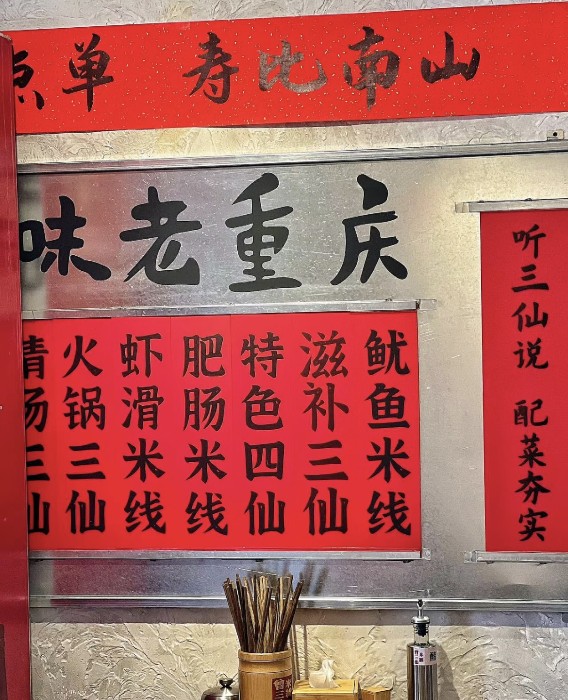 点单 寿比南山
味老重庆
听三仙说 配菜夯实
鱿鱼米线
滋补三仙
特色四仙
肥肠米线
虾滑米线
火锅三仙
清汤三仙